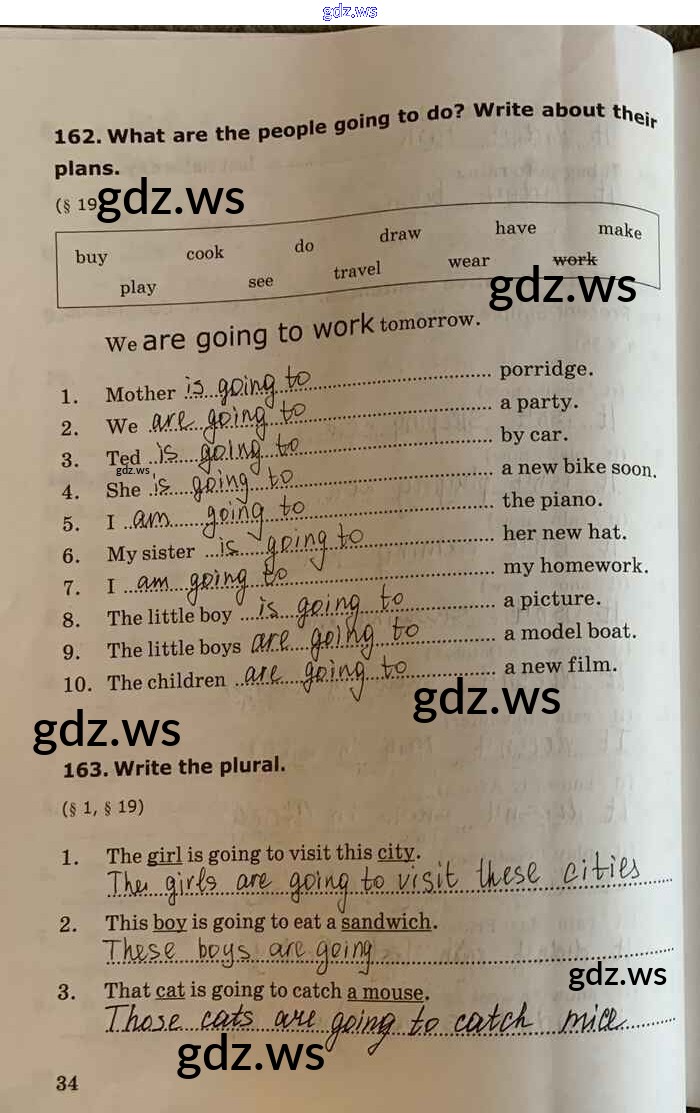 gdz.ws
162. What are the people going to do? Write about their
plans.
(§ 19
gdz.ws
buy cook do draw have make
play see travel wear work
gdz.ws
We are going to work tomorrow.
1. Mother is going to porridge.
2. We are going to a party.
3. Ted is going to by car.
gdz.ws
4. She is going to a new bike soon.
5. I am going to the piano.
6. My sister is going to her new hat.
7. I am going to my homework.
8. The little boy is going to a picture.
9. The little boys are going to a model boat.
10. The children are going to a new film.
gdz.ws
gdz.ws
163. Write the plural.
(§ 1, § 19)
1. The girl is going to visit this city.
The girls are going to visit these cities
2. This boy is going to eat a sandwich.
These boys are going
gdz.ws
3. That cat is going to catch a mouse.
Those cats are going to catch mice
gdz.ws
34